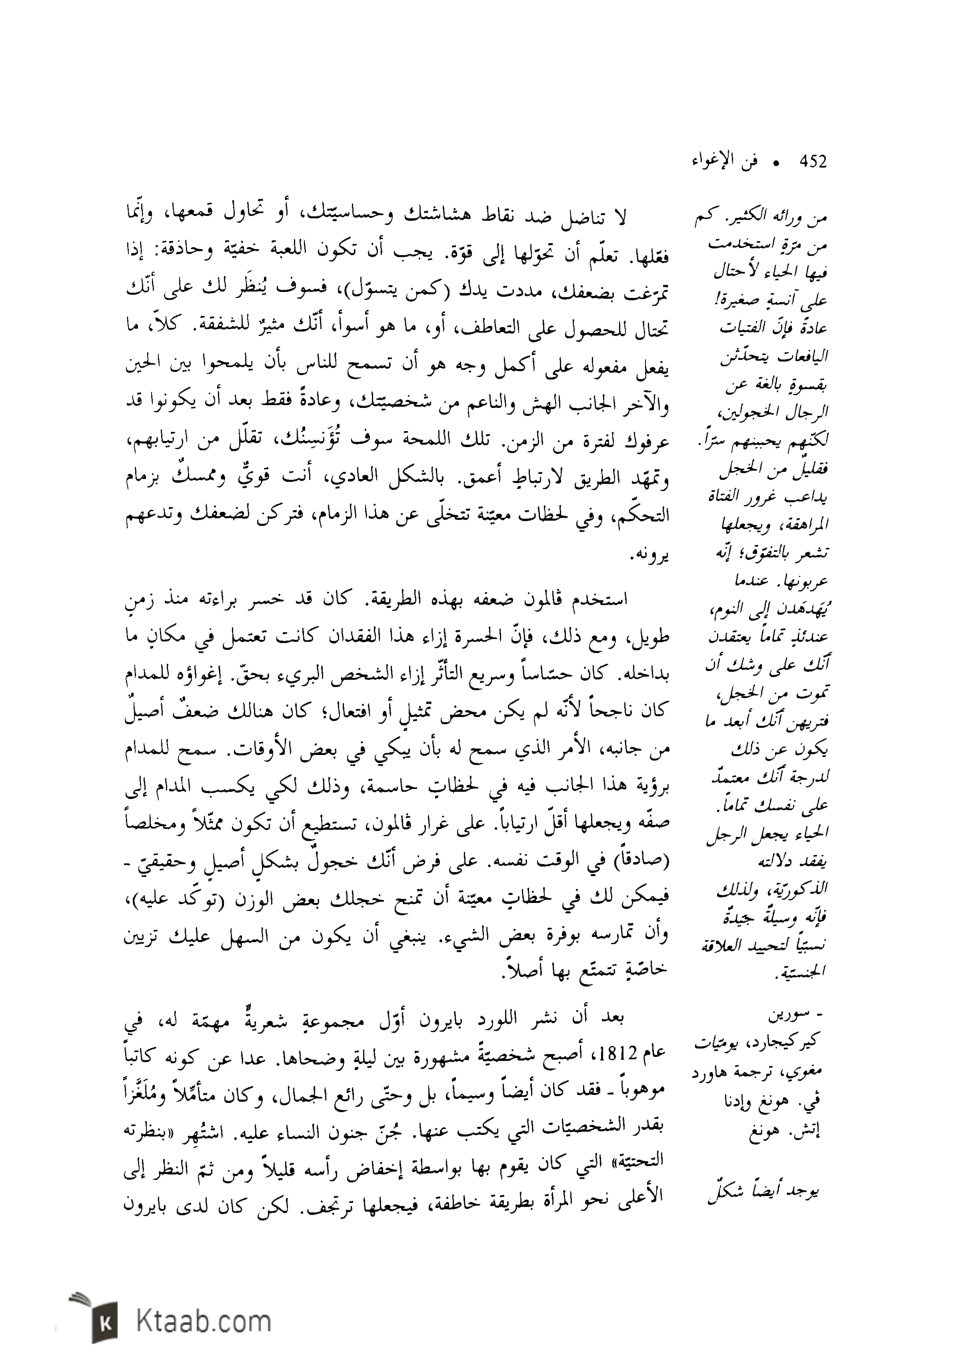 452 • فن الإغواء
لا تناضل ضد نقاط هشاشتك وحساسيّتك، أو تحاول قمعها، وإنّما
فعّلها. تعلّم أن تحوّلها إلى قوّة. يجب أن تكون اللعبة خفيّة وحاذقة: إذا
تمرّغت بضعفك، مددت يدك (كمن يتسوّل)، فسوف يُنظَر لك على أنّك
تحتال للحصول على التعاطف، أو، ما هو أسوأ، أنّك مثيرٌ للشفقة. كلاّ، ما
يفعل مفعوله على أكمل وجه هو أن تسمح للناس بأن يلمحوا بين الحين
والآخر الجانب الهش والناعم من شخصيّتك، وعادةً فقط بعد أن يكونوا قد
عرفوك لفترة من الزمن. تلك اللمحة سوف تُؤَنسِنُك، تقلّل من ارتيابهم،
وتمهّد الطريق لارتباطٍ أعمق. بالشكل العادي، أنت قويٌّ وممسكٌ بزمام
التحكّم، وفي لحظات معيّنة تتخلّى عن هذا الزمام، فتركن لضعفك وتدعهم
يرونه.
استخدم ڤالمون ضعفه بهذه الطريقة. كان قد خسر براءته منذ زمنٍ
طويل، ومع ذلك، فإنّ الحسرة إزاء هذا الفقدان كانت تعتمل في مكانٍ ما
بداخله. كان حسّاساً وسريع التأثّر إزاء الشخص البريء بحقّ. إغواؤه للمدام
كان ناجحاً لأنّه لم يكن محض تمثيلٍ أو افتعال؛ كان هنالك ضعفٌ أصيلٌ
من جانبه، الأمر الذي سمح له بأن يبكي في بعض الأوقات. سمح للمدام
برؤية هذا الجانب فيه في لحظاتٍ حاسمة، وذلك لكي يكسب المدام إلى
صفّه ويجعلها أقلّ ارتياباً. على غرار ڤالمون، تستطيع أن تكون ممثّلاً ومخلصاً
(صادقاً) في الوقت نفسه. على فرض أنّك خجولٌ بشكلٍ أصيلٍ وحقيقيّ -
فيمكن لك في لحظاتٍ معيّنة أن تمنح خجلك بعض الوزن (توكّد عليه)،
وأن تمارسه بوفرة بعض الشيء. ينبغي أن يكون من السهل عليك تزيين
خاصّةٍ تتمتّع بها أصلاً.
بعد أن نشر اللورد بايرون أوّل مجموعةٍ شعريةٌ مهمّة له، في
عام 1812، أصبح شخصيّةً مشهورة بين ليلةٍ وضحاها. عدا عن كونه كاتباً
موهوباً ـ فقد كان أيضاً وسيماً، بل وحتّى رائع الجمال، وكان متأمّلاً ومُلَغَّزاً
بقدر الشخصيّات التي يكتب عنها. جُنّ جنون النساء عليه. اشتُهِر «بنظرته
التحتيّة» التي كان يقوم بها بواسطة إخفاض رأسه قليلاً ومن ثمّ النظر إلى
الأعلى نحو المرأة بطريقة خاطفة، فيجعلها ترتجف. لكن كان لدى بايرون
من ورائه الكثير. كم
من مرّةٍ استخدمت
فيها الحياء لأحتال
على آنسةٍ صغيرة!
عادةً فإنّ الفتيات
اليافعات يتحدّثن
بقسوةٍ بالغة عن
الرجال الخجولين،
لكنّهم يحببنهم سرّاً.
فقليلٌ من الخجل
يداعب غرور الفتاة
المراهقة، ويجعلها
تشعر بالتفوّق؛ إنّه
عربونها. عندما
يُهَدهَدن إلى النوم،
عندئذٍ تماماً يعتقدن
أنّك على وشك أن
تموت من الخجل،
فتريهن أنّك أبعد ما
يكون عن ذلك
لدرجة أنّك معتمدٌ
على نفسك تماماً.
الحياء يجعل الرجل
يفقد دلالته
الذكوريّة، ولذلك
فإنّه وسيلةٌ جيّدةٌ
نسبيّاً لتحييد العلاقة
الجنسيّة.
ـ سورين
كيركيجارد، يوميّات
مغوي، ترجمة هاورد
ڤي. هونغ وإدنا
إتش. هونغ
يوجد أيضاً شكلٌ
K Ktaab.com